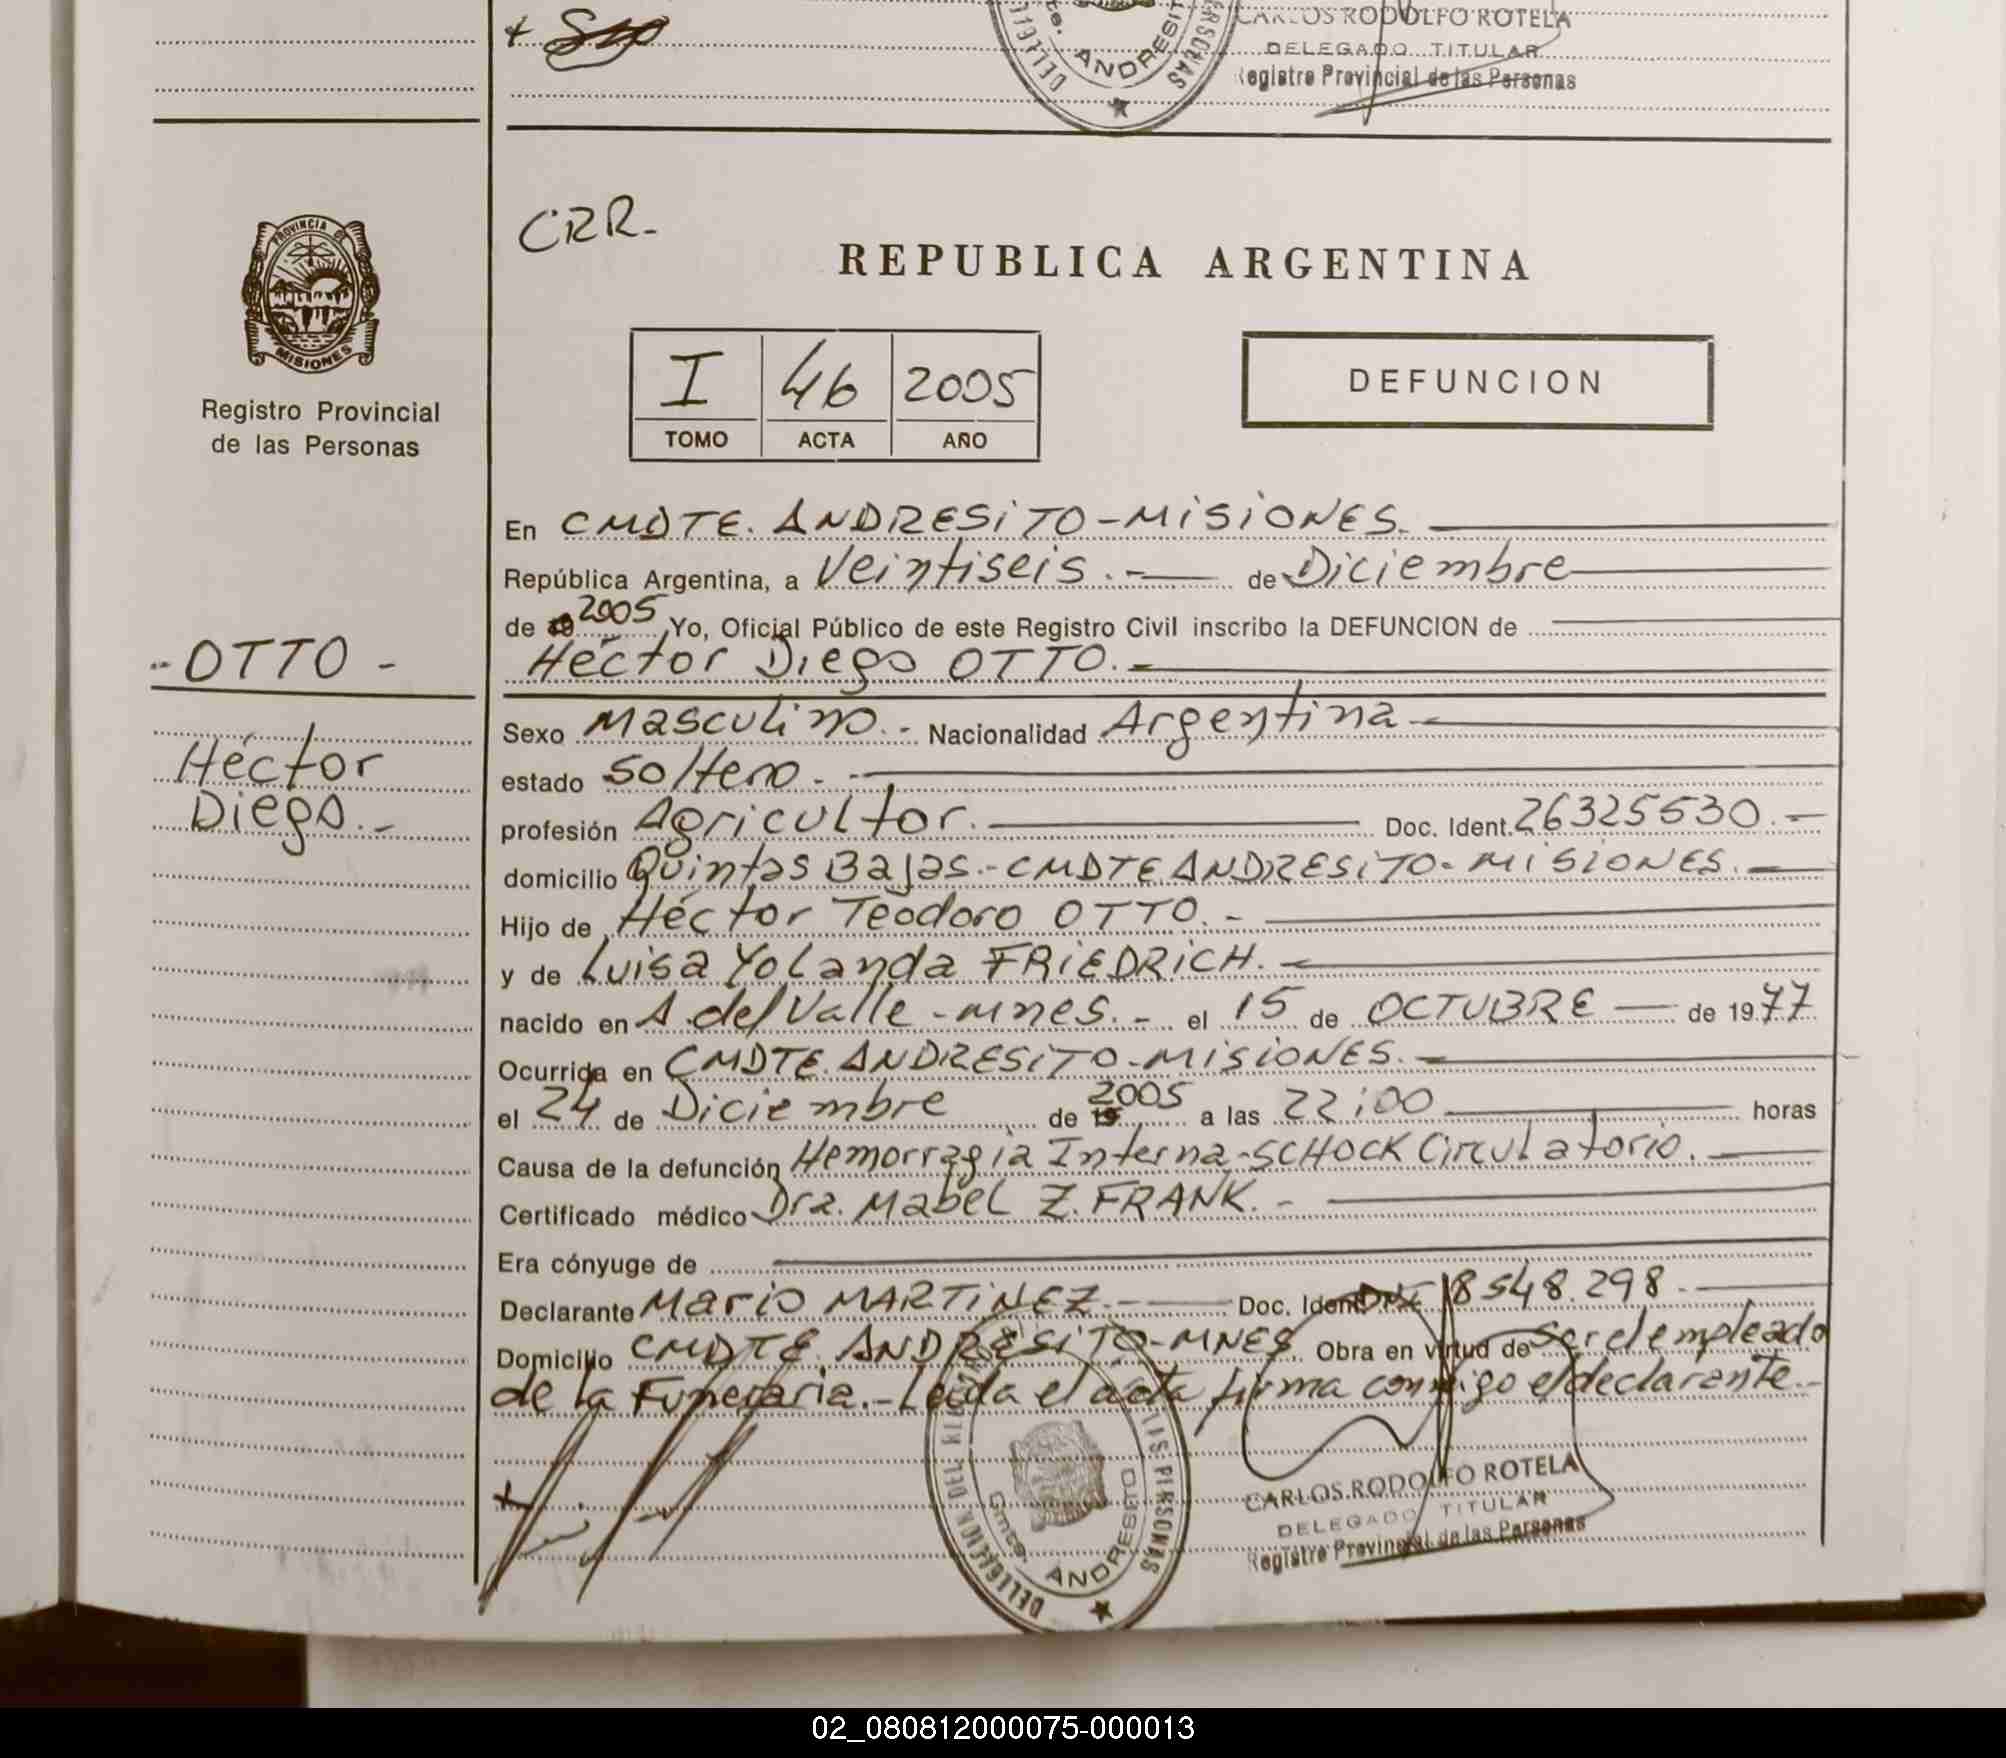 CARLOS RODOLFO ROTELA
DELEGADO TITULAR
Registro Provincial de las Personas
ANDRESITO
PROVINCIA DE
MISIONES
Registro Provincial
de las Personas
CRR.-
REPUBLICA ARGENTINA
I 46 2005
TOMO ACTA AÑO
DEFUNCION
En CMDTE. ANDRESiTO-MiSiONES.
República Argentina, a Veintiseis.- de Diciembre
de 19 2005 Yo, Oficial Público de este Registro Civil inscribo la DEFUNCION de
Héctor Diego OTTO.-
-OTTO-
Héctor
Diego.-
Sexo Masculino.- Nacionalidad Argentina-
estado Soltero.-
profesión Agricultor. Doc. Ident. 26325530.-
domicilio Quintas Bajas.-CMDTE ANDRESiTO-MiSiONES.-
Hijo de Héctor Teodoro OTTO.-
y de Luisa Yolanda FRiEDRiCH.-
nacido en A. del Valle-mnes.- el 15 de OCTUBRE de 1977
Ocurrida en CMDTE. ANDRESiTO-MiSiONES.-
el 24 de Diciembre de 19 2005 a las 22:00 horas
Causa de la defunción Hemorragia Interna-SCHOCK Circulatorio.
Certificado médico Dra. Mabel Z. FRANK.-
Era cónyuge de
Declarante Mario MARTiNEZ.- Doc. Ident. DNI 8548.298.-
Domicilio CMDTE. ANDRESiTO-MNES. Obra en virtud de Ser el empleado
de la Funeraria.-Leida el acta firma conmigo el declarante.-
DELEGACION DEL REGISTRO DE LAS PERSONAS
Cmte. ANDRESITO
CARLOS RODOLFO ROTELA
DELEGADO TITULAR
Registro Provincial de las Personas
02_080812000075-000013